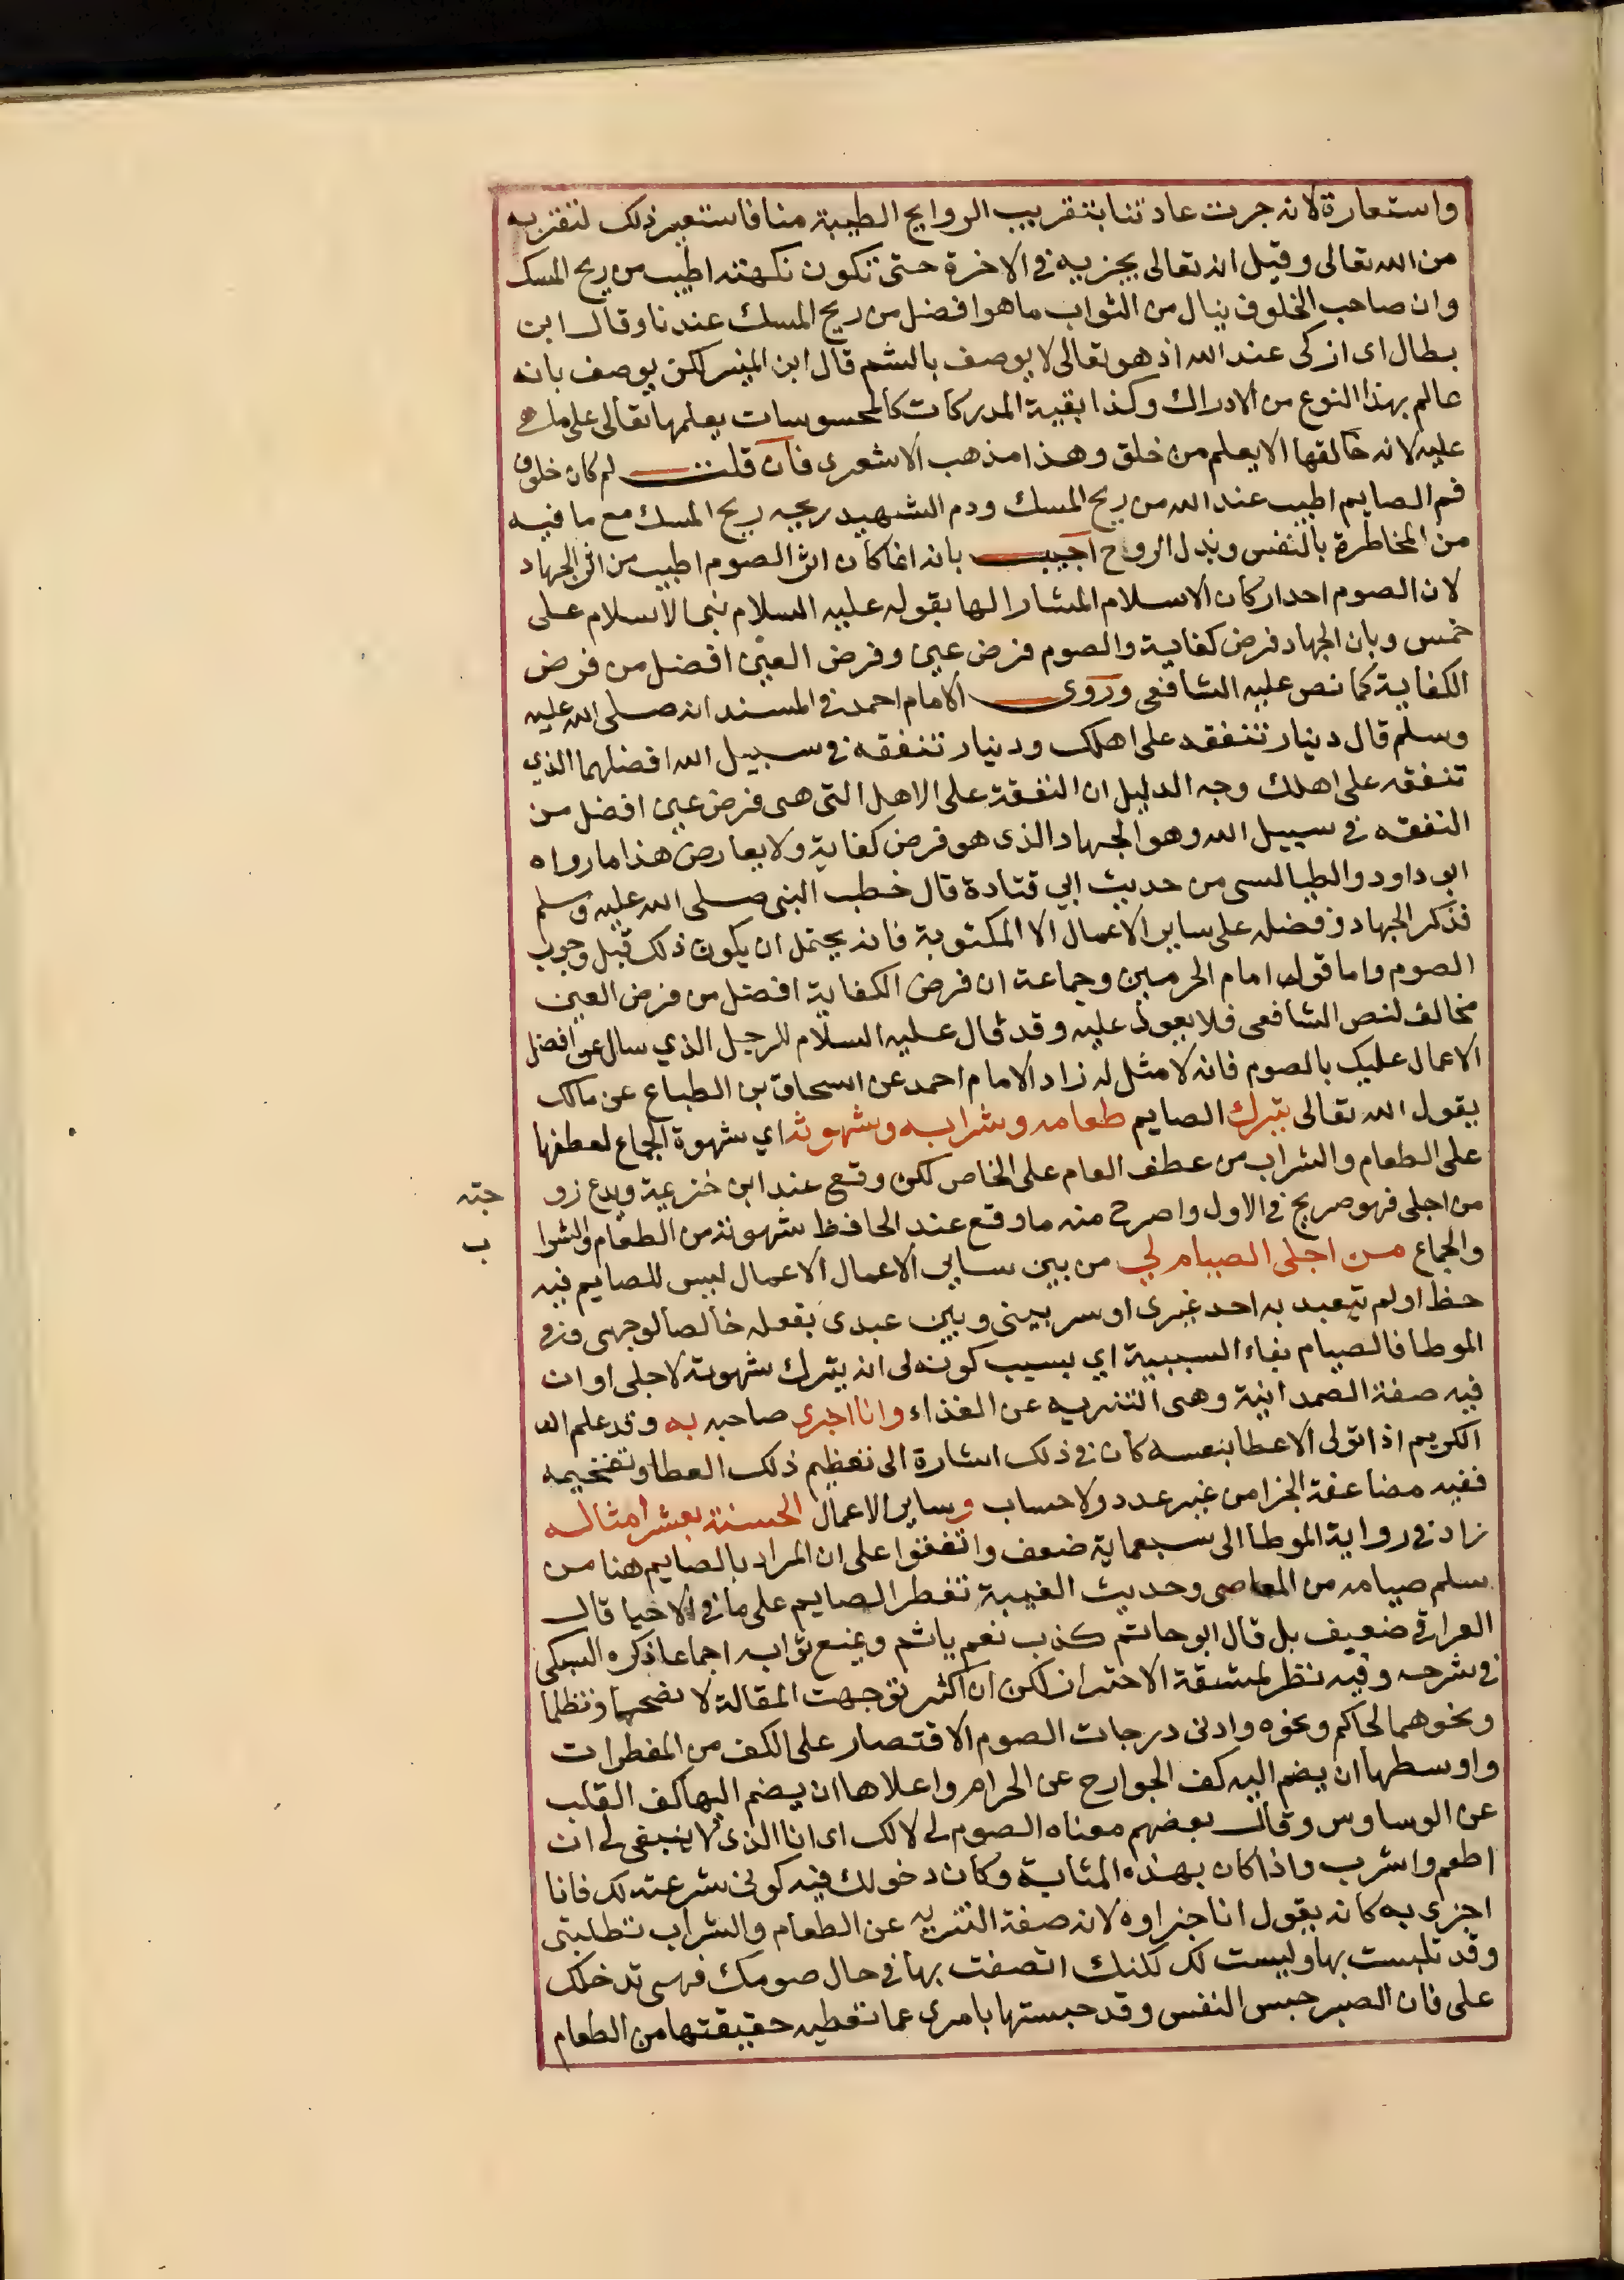 واستعارة لانه جرت عادتنا بتقريب الروايح الطيبة منا فاستعير ذلك لتقربه
من الله تعالى وقيل انه تعالى يجزيه في الاخرة حتى تكون نكهته اطيب من ريح المسك
وان صاحب الخلوف ينال من الثواب ما هو افضل من ريح المسك عندنا وقال ابن
بطال اى ازكى عند الله اذ هو تعالى لا يوصف بالشم قال ابن المنير لكن يوصف بانه
عالم بهذا النوع من الادراك وكذا بقية المدركات كالمحسوسات يعلمها تعالى على ما هي
عليه لانه خالقها الا يعلم من خلق وهذا مذهب الاشعرى فان قلت لم كان خلوف
فم الصايم اطيب عند الله من ريح المسك ودم الشهيد ريحه ريح المسك مع ما فيه
من المخاطرة بالنفس وبذل الروح اجيب بانه انما كان اثر الصوم اطيب من اثر الجهاد
لان الصوم احد اركان الاسلام المشار الها بقوله عليه السلام بنى الاسلام على
خمس وبان الجهاد فرض كفاية والصوم فرض عين وفرض العين افضل من فرض
الكفاية كما نص عليه الشافعى وروى الامام احمد في المسند انه صلى الله عليه
وسلم قال دينار تنفقه على اهلك ودينار تنفقه في سبيل الله افضلهما الذي
تنفقه على اهلك وجه الدليل ان النفقة على الاهل التى هى فرض عين افضل من
النفقه في سبيل الله وهو الجهاد الذى هو فرض كفاية ولا يعارض هذا ما رواه
ابو داود والطيالسى من حديث ابي قتادة قال خطب النبى صلى الله عليه وسلم
فذكر الجهاد وفضله على ساير الاعمال الا المكتوبة فانه يحتمل ان يكون ذلك قبل وجوب
الصوم واما قول امام الحرمين وجماعة ان فرض الكفاية افضل من فرض العين
مخالف لنص الشافعى فلا يعول عليه وقد قال عليه السلام للرجل الذي سال عن افضل
الاعمال عليك بالصوم فانه لا مثل له زاد الامام احمد عن اسحاق بن الطباع عن مالك
يقول الله تعالى يترك الصايم طعامه وشرابه وشهوته اي شهوة الجماع لعطفها
على الطعام والشراب من عطف العام على الخاص لكن وقع عند ابن خزيمة ويدع زو
جته
من اجلى فهو صريح في الاول واصرح منه ما وقع عند الحافظ شهوته من الطعام والشرا
ب
والجماع من اجلى الصيام لي من بين ساير الاعمال الاعمال ليس للصايم فيه
حظ او لم يتعبد به احد غيرى او سر بينى وبين عبدى بفعله خالصا لوجهى وفي
الموطا فالصيام بفاء السببية اي بسبب كونه لى انه يترك شهوته لاجلى او ان
فيه صفة الصمدانية وهى التنزيه عن الغذاء وانا اجزى صاحبه به وقد علم ان
الكريم اذا تولى الاعطا بنفسه كان في ذلك اشارة الى تعظيم ذلك العطا وتفخيمه
ففيه مضاعفة الجزا من غير عدد ولا حساب وساير الاعمال الحسنة بعشر امثاله
زاد في رواية الموطا الى سبعماية ضعف واتفقوا على ان المراد بالصايم هنا من
سلم صيامه من المعاصى وحديث الغيبة تفطر الصايم على ما في الاحيا قال
العراقي ضعيف بل قال ابو حاتم كذب نعم ياثم ويمنع ثوابه اجماعا ذكره السبكى
في شرحه وفيه نظر لمشقة الاحتراز لكن ان اكثر توجهت المقالة لا
ونحوهما لحاكم ونحوه وادنى درجات الصوم الاقتصار على الكف من المفطرات
واوسطها ان يضم اليه كف الجوارح عن الحرام واعلاها ان يضم اليها كف القلب
عن الوساوس وقال بعضهم معناه الصوم لى لا لك اى انا الذى لا ينبغى لى ان
اطعم واشرب واذا كان بهذه المثابة وكان دخولك فيه كوني شرعته لك فانا
اجزى به كانه يقول انا جزاوه لانه صفة التنزيه عن الطعام والشراب تطلبنى
وقد تلبست بها وليست لك لكنك اتصفت بها في حال صومك فهى تدخلك
على فان الصبر حبس النفس وقد حبستها بامرى عما تعطيه حقيقتها من الطعام